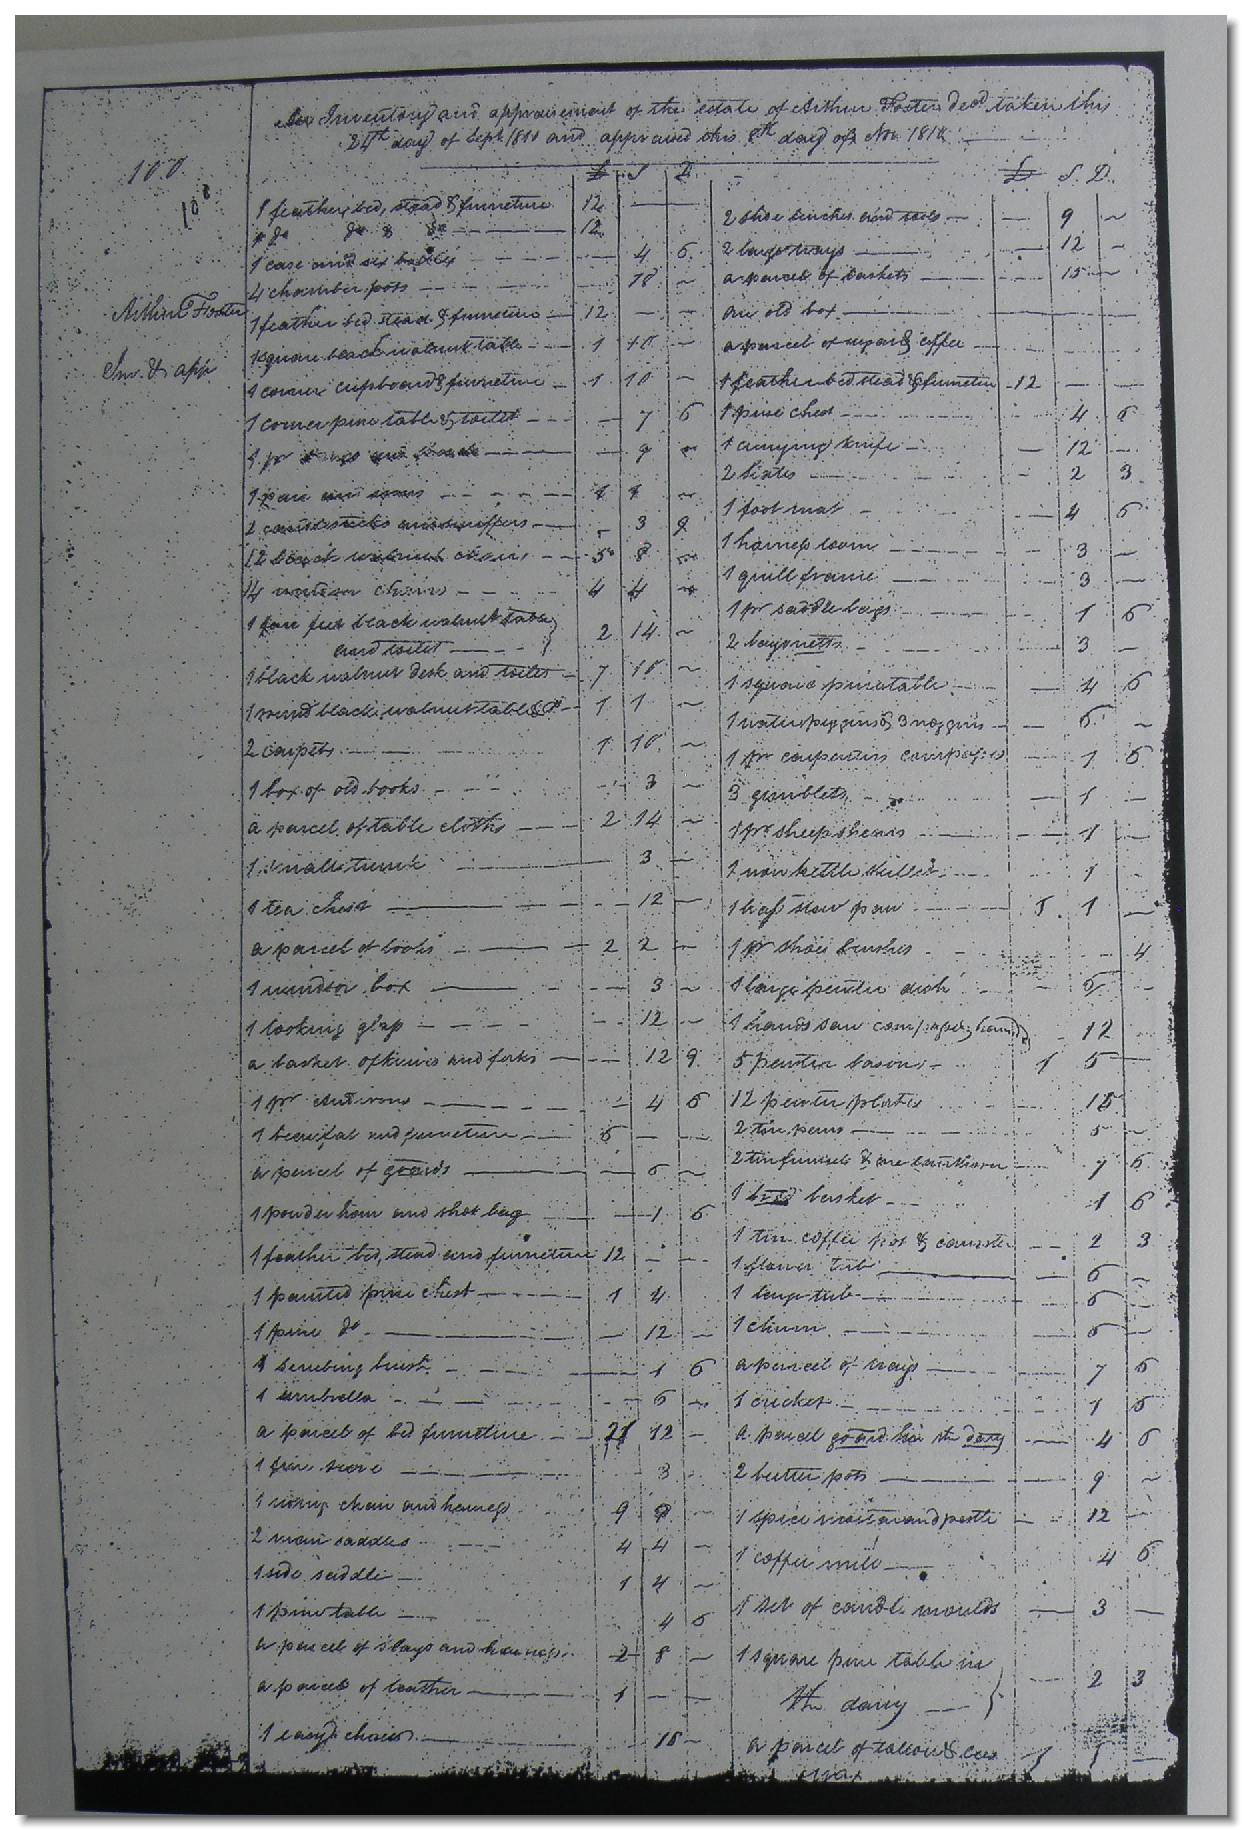 An Inventory and appraisement of the estate of Arthur Foster decd. taken this
24th day of Sept. 1810 and appraised this 8th day of Nov. 181
100
108
Arthur Foster
Inv. & app
£ S D
1 feather bed, stead & furneture 12
do do & do 12
1 case and six bottles 4 6
4 chamber pots 18
1 feather bed stead & furneture 12
1 square black walnut table 1 10
1 corner cupboard & furneture 1 10
1 corner pine table & toilet 7 6
1 pr and 9
1 pair
2 candlesticks and snuffers 3 9
12 black walnut chairs 5 8
14 windsor chairs 4 4
1 four feet black walnut table
and toilet 2 14
1 black walnut desk and toilet 7 10
1 round black walnut table & do 1 1
2 carpets 1 10
1 box of old books 3
a parcel of table cloths 2 14
1 small trunk 3
1 tea chest 12
a parcel of books 2 2
1 windsor box 3
1 looking glass 12
a basket of knives and forks 12 9
1 pr andirons 4 6
1 beaufat and furneture 6
a parcel of goards 6
1 powder horn and shot bag 1 6
1 feather bed, stead and furneture 12
1 painted pine chest 1 4
1 pine do 12
1 scrubing brush 1 6
1 umbrella 6
a parcel of bed furneture 21 12
1 fine sieve 3
1 riding chair and harness 9 9
2 mans saddles 4 4
1 side saddle 1 4
1 pine table 4 6
a parcel of slays and harness 2 8
a parcel of leather 1
1 easy chair 15
£ S. D.
2 shoe benches and tools 9
2 large trays 12
a parcel of baskets 15
an old box
a parcel of sugar & coffee
1 feather bed stead & furneture 12
1 pine chest 4 6
1 currying knife 12
2 2 3
1 foot mat 4 6
1 harness loom 3
1 quill frame 3
1 pr saddle bags 1 6
2 bayonetts 3
1 square pine table 4 6
1 water piggin & 3 noggins 6
1 pr carpenters compasses 1 6
3 gimblets 1
1 pr. sheep shears 1
1 iron kettle skillet 1
1 brass stew pan 1 1
1 pr shoe brushes 4
1 large pewter dish 6
1 hand saw compass & 12
5 pewter basons 1 5
12 pewter plates 18
2 tin pans 5
2 tin funnels & one 7 6
1 bread basket 1 6
1 tin coffee pot & cannister 2 3
1 flower tub 6
1 large tub 6
1 churn 6
a parcel of trays 7 6
1 cricket 1 6
a parcel in the dairy 4 6
2 butter pots 9
1 spice mortar and pestle 12
1 coffee mill 4 6
1 set of candle moulds 3
1 square pine table in
the dairy 2 3
a parcel of tallow &